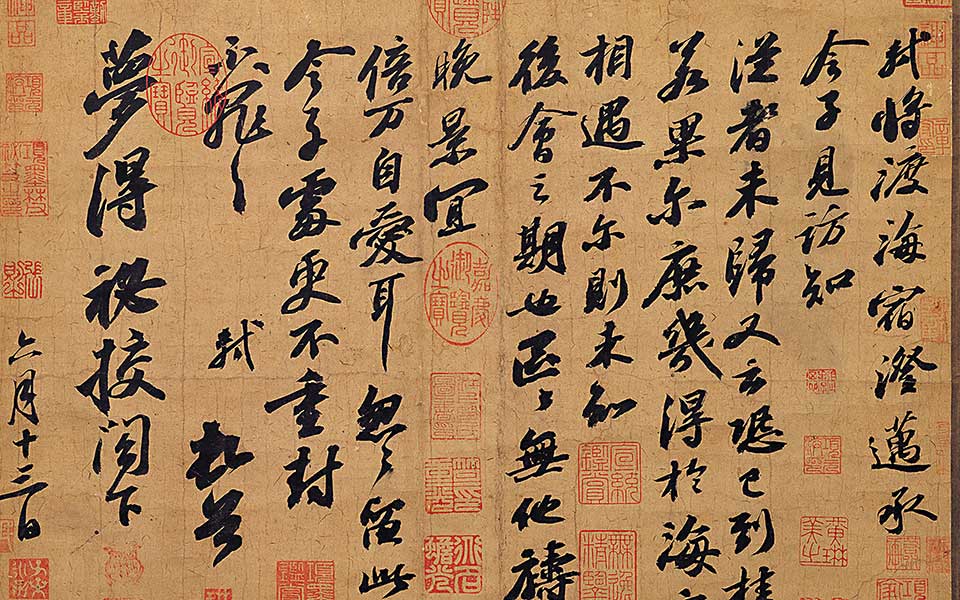 軾將渡海宿澄邁承
令子見訪知
從者未歸又云恐已到桂
若果尔庶幾得於海
相遇不尔則未知
後會之期也區區無他禱
晚景宜
倍万自愛耳忽忽留此
令子處更不重封
不罪不罪
軾頓首
夢得祕校閣下
六月十三日